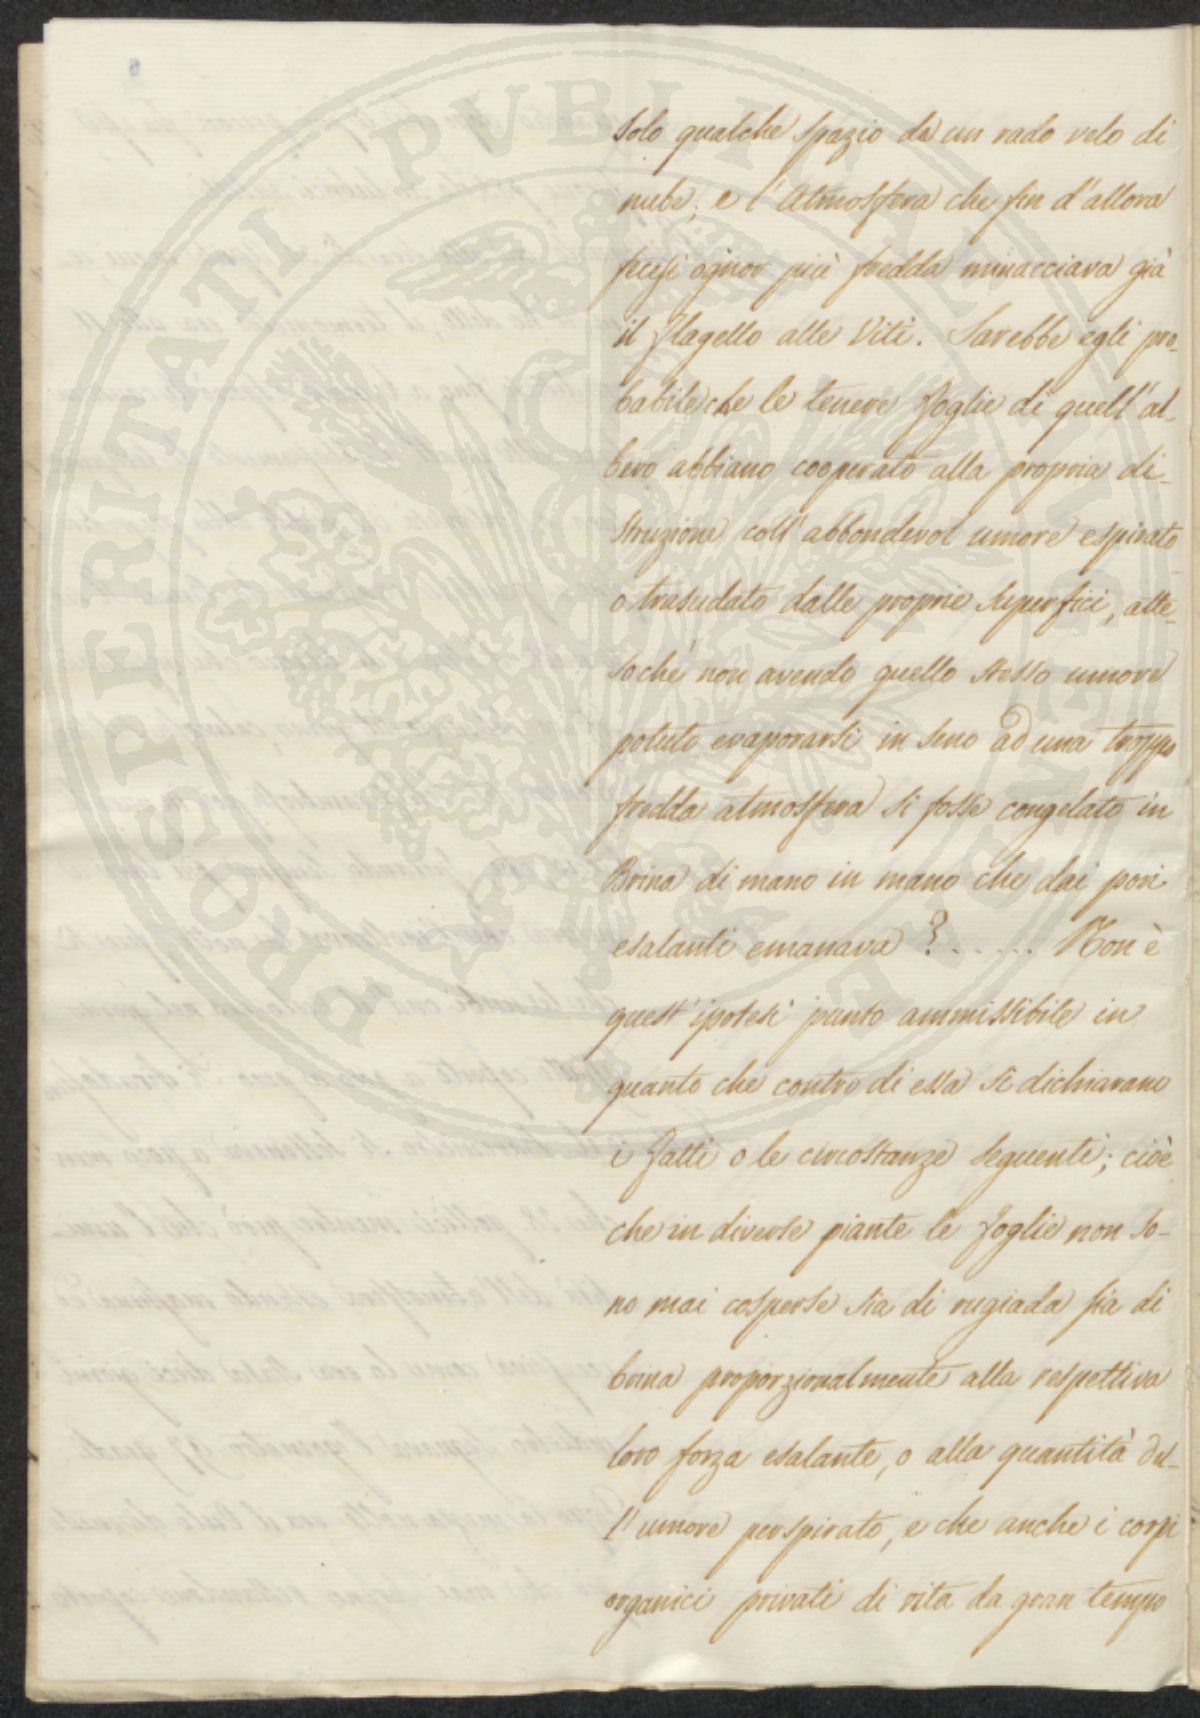 solo qualche spazio da un rado velo di
nube, e l'Atmosfera che fin d'allora
fecesi ognor più fredda minacciava già
il flagello alle Viti. Sarebbe egli pro-
babile che le tenere foglie di quell'al-
bero abbiano cooperato alla propria di-
struzione coll'abbondevol umore espirato
o trasudato dalle proprie superfici, atte-
sochè non avendo quello stesso umore
potuto evaporarsi in seno ad una troppo
fredda atmosfera si fosse congelato in
Brina di mano in mano che dai pori
esalanti emanava ?...... Non è
quest'ipotesi punto ammissibile in
quanto che contro di essa si dichiarano
i fatti o le circostanze seguenti; cioè
che in diverse piante le foglie non so-
no mai cosperse sia di rugiada sia di
brina proporzionalmente alla respettiva
loro forza esalante, o alla quantità del-
l'umore perspirato, e che anche i corpi
organici privati di vita da gran tempo
PROSPERITATI PUBLICAE AUGENDAE